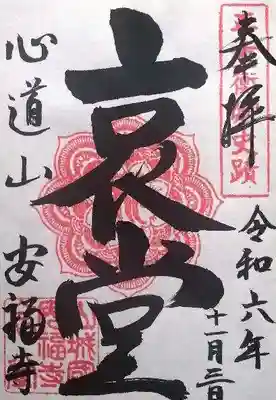 奉拝
令和六年
十一月三日
哀堂
心道山 安福寺